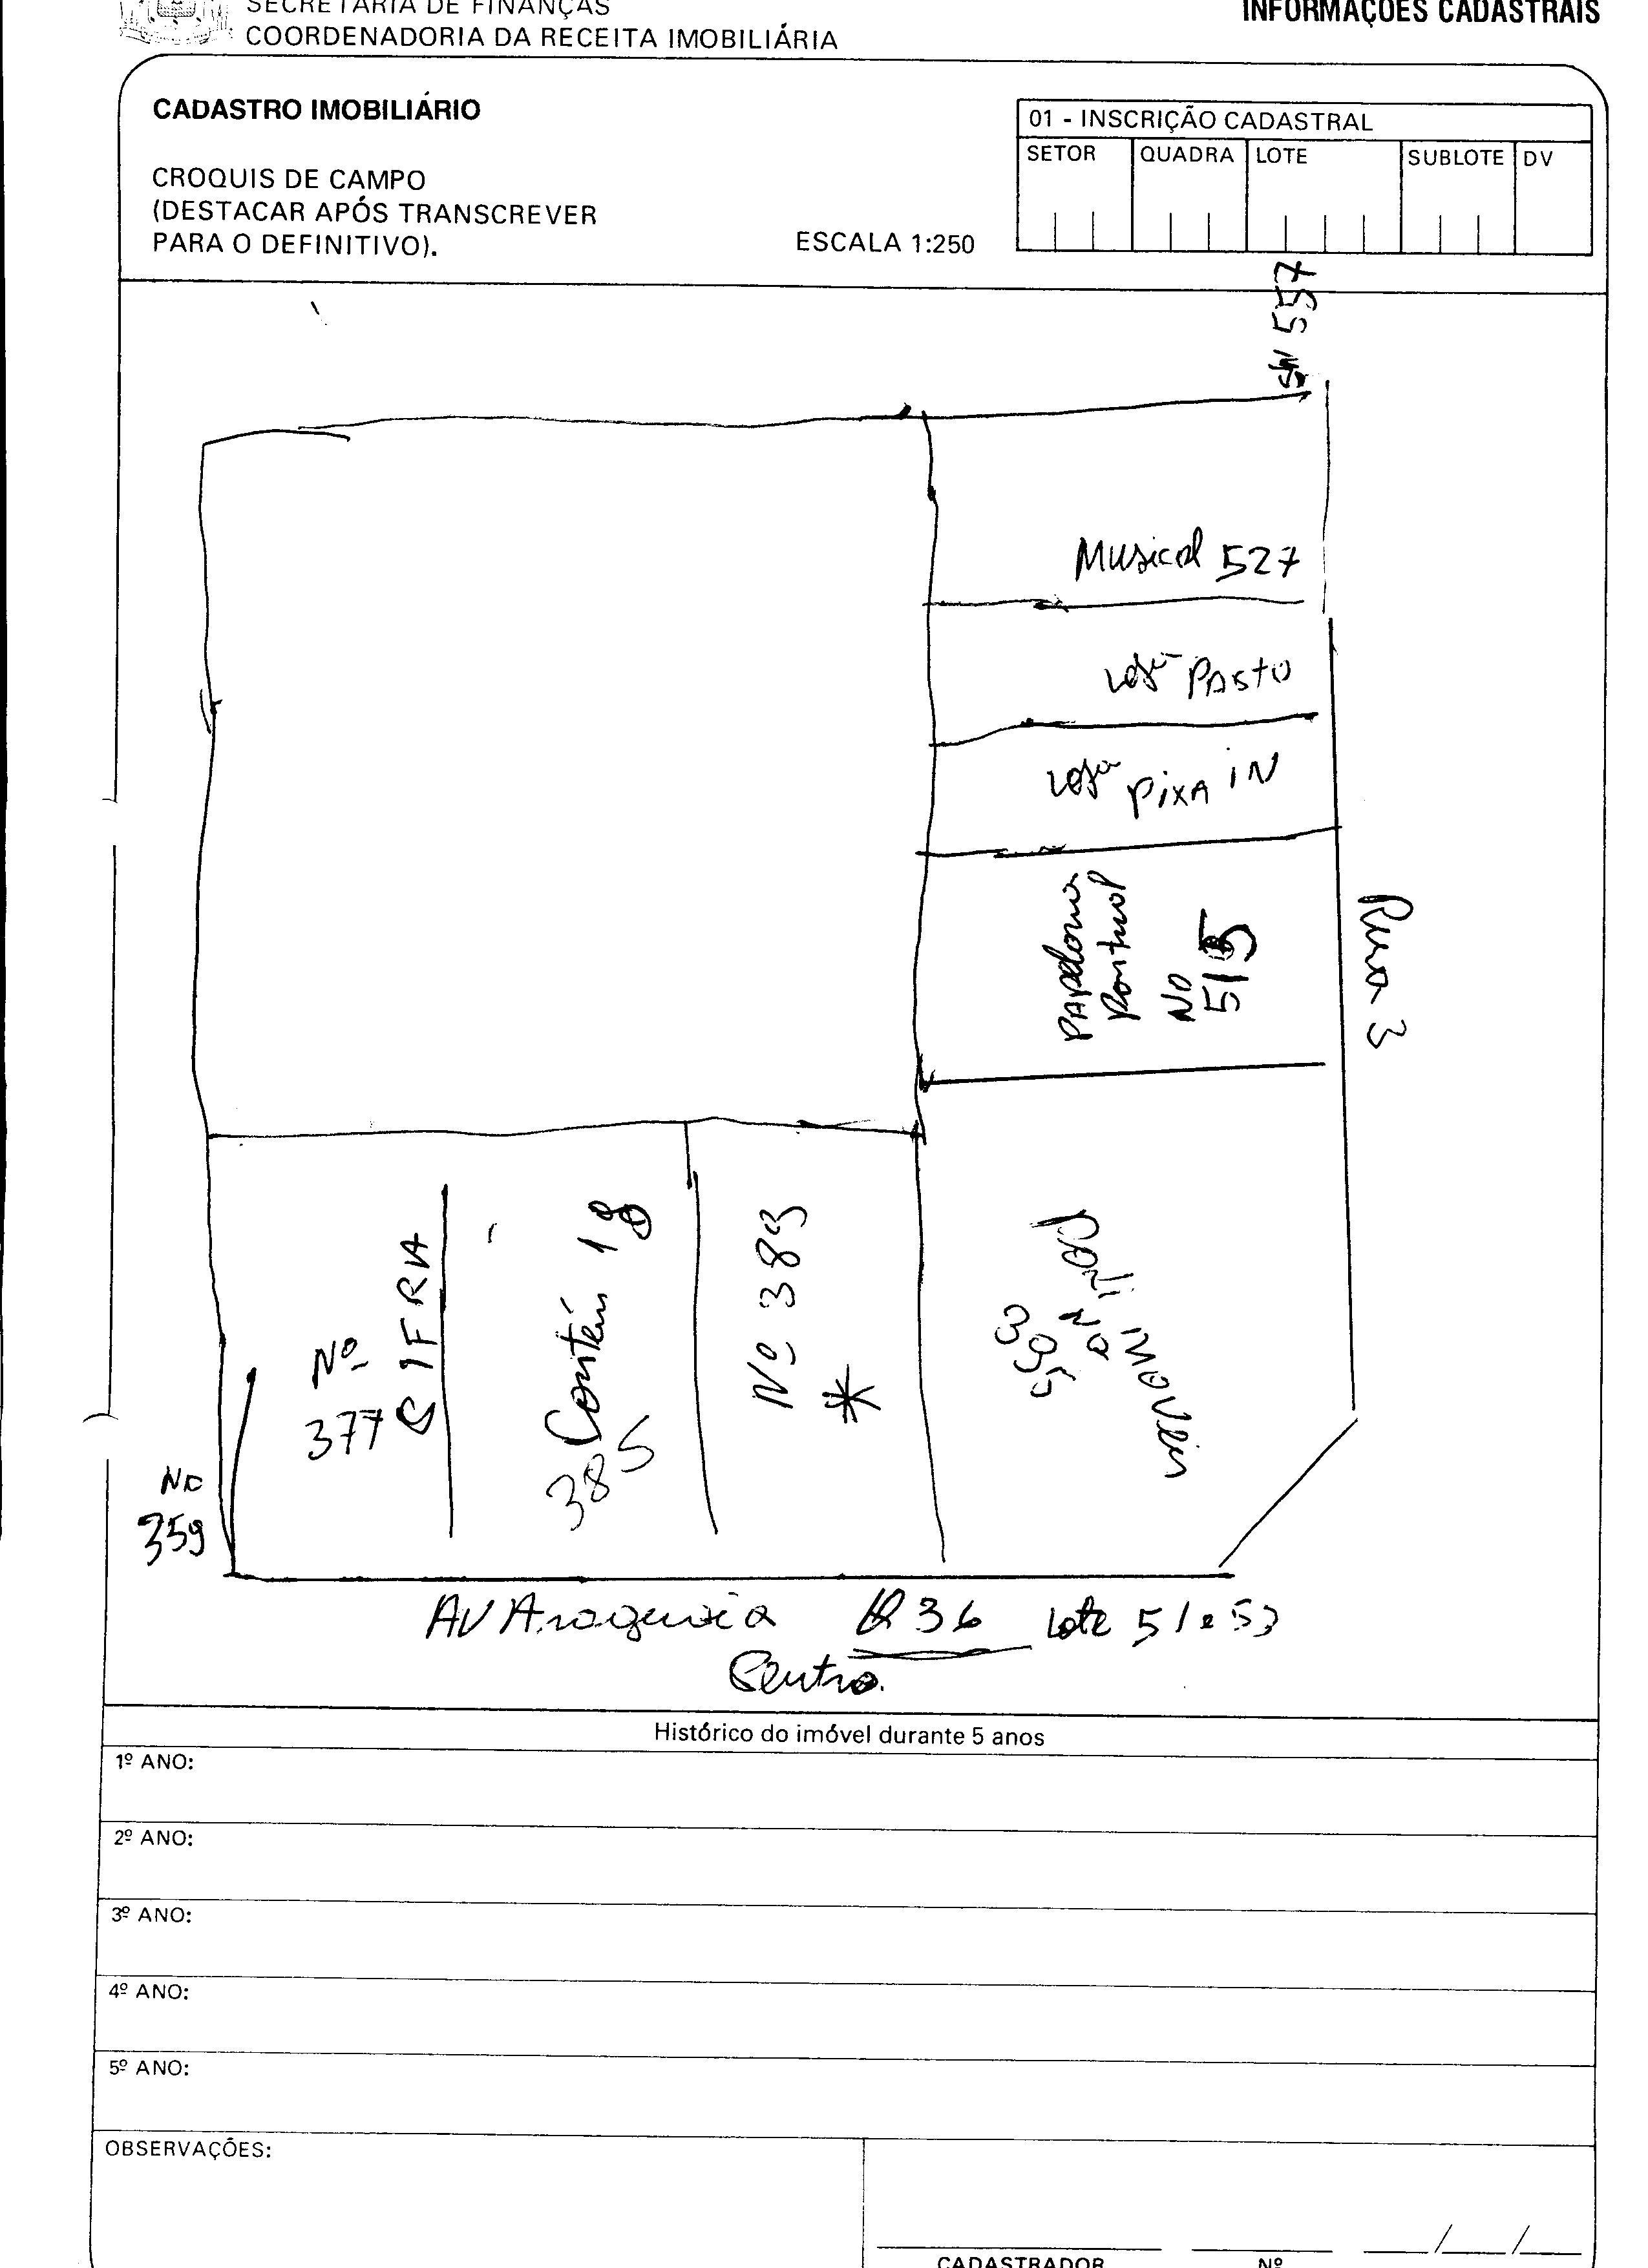 SECRETARIA DE FINANÇAS
COORDENADORIA DA RECEITA IMOBILIÁRIA
INFORMAÇÕES CADASTRAIS
CADASTRO IMOBILIÁRIO
CROQUIS DE CAMPO
(DESTACAR APÓS TRANSCREVER
PARA O DEFINITIVO).
ESCALA 1:250
01 - INSCRIÇÃO CADASTRAL
SETOR QUADRA LOTE SUBLOTE DV
557
Musical 527
Loja PASTO
Loja PIXA IN
PAPELARIA
Pontual
NO
515
Rua 3
Nº
377
CIFRA
Contém 1g
385
Nº 389
*
IMOVEIS
NO
395
NO
359
AV Araguaia Q 36 Lote 51 e 53
Centro.
Histórico do imóvel durante 5 anos
1º ANO:
2º ANO:
3º ANO:
4º ANO:
5º ANO:
OBSERVAÇÕES:
CADASTRADOR
Nº